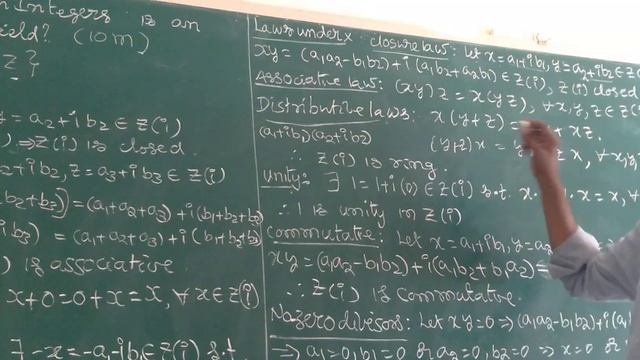 n Integers is an
ield? (10m)
z ?
y = a2+ib2 ∈ Z(i)
) ⇒ Z(i) is closed.
2+ib2, z = a3+ib3 ∈ Z(i)
b2+b3)] = (a1+a2+a3)+i(b1+b2+b3)
ib3) = (a1+a2+a3)+i(b1+b2+b3)
) is associative
x+0=0+x=x, ∀ x∈Z(i)
∃ -x=-a1-ib1 ∈ Z(i) s.t.
Laws under x closure law: let x=a1+ib1, y=a2+ib2 ∈ Z(i)
xy = (a1a2-b1b2)+i(a1b2+a2b1) ∈ Z(i), Z(i) closed
Associative law: (xy)z = x(yz), ∀x,y,z∈Z(i)
Distributive laws: x(y+z) = + xz.
(a1+ib1)(a2+ib2) (y+z)x = zx, ∀x,y,
∴ Z(i) is ring.
Unity: ∃ 1=1+i(0) ∈ Z(i) s.t. x. .x = x, ∀
∴ 1 is unity in Z(i)
commutative: Let x=a1+ib1, y=a2
xy=(a1a2-b1b2)+i(a1b2+b1a2)=
∴ Z(i) is commutative.
No zero divisors: Let xy=0 ⇒ (a1a2-b1b2)+i(a1
⇒ a1=0, b1=0 or a2=0, b2=0 ⇒ x=0 or